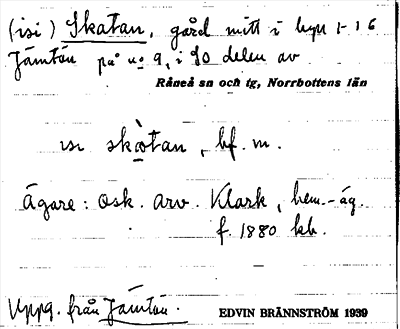 (isi) Skatan, gård mitt i byn 1-16
Jämtön på no 9, i SO delen av
Råneå sn och tg, Norrbottens län
ısı skatan, bf. m.
Ägare: Osk. arv. Klark, hem.-äg.
f. 1880 kb.
Uppg. från Jämtön.
EDVIN BRÄNNSTRÖM 1939